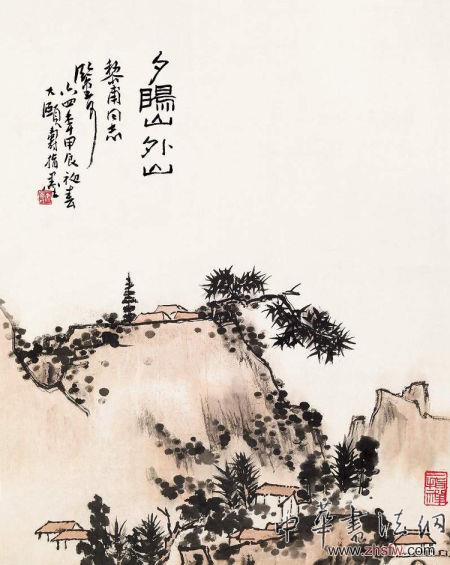 夕陽山外山
黎甫同志
六四年甲辰初春
大頤壽指墨
中華書法網
www.zhsfw.com